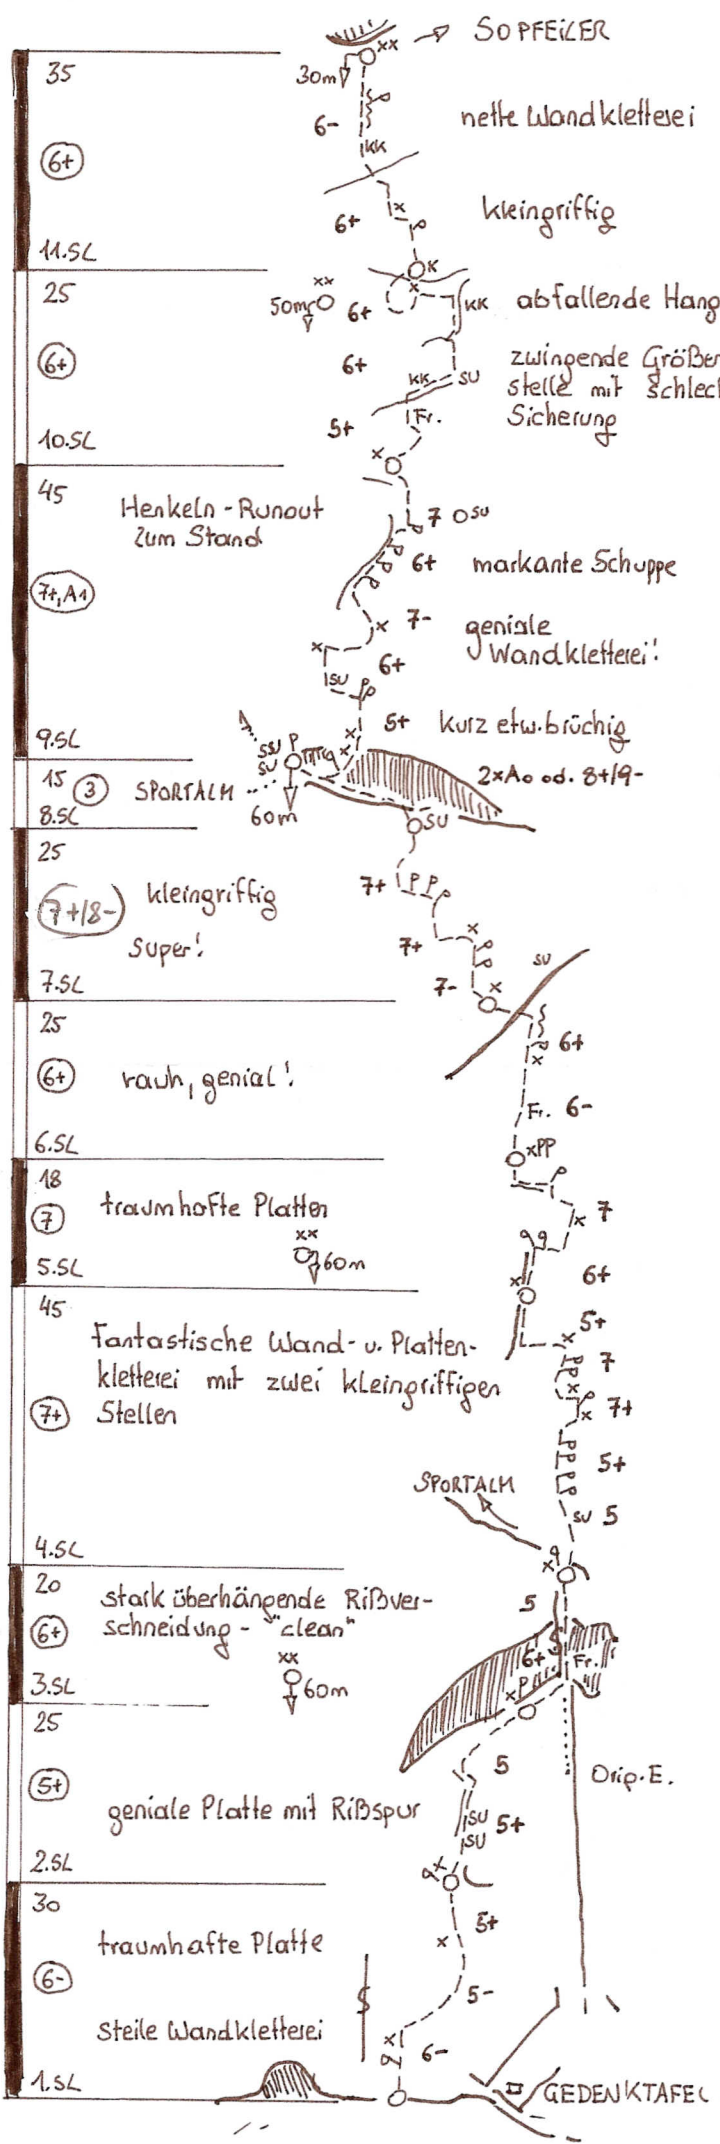 SO PFEILER
xx
35
30m
6-
nette Wandkletterei
KK
6+
x
6+
kleingriffig
11.SL
K
25
xx
50m
x
6+
KK
abfallende Hang
6+
6+
zwingende Größen
KK
SU
stelle mit schlech
5+
Fr.
Sicherung
10.SL
x
45
Henkeln - Runout
zum Stand
7
SU
6+
markante Schuppe
7+, A1
x
7-
geniale
Wandkletterei!
x
6+
SU
5+
kurz etw. brüchig
9.SL
SSU
P
x
x
SU
15
3
SPORTALM
2xA0 od. 8+/9-
8.SL
60m
SU
25
7+
PP
7+/8-
kleingriffig
super!
7+
x
SU
7.SL
7-
x
25
6+
x
6+
rauh, genial!
Fr.
6-
6.SL
xPP
18
7
traumhafte Platten
x
7
xx
60m
5.SL
x
6+
45
x
5+
Fantastische Wand- u. Platten-
kletterei mit zwei kleingriffigen
Stellen
7
x
7+
x
7+
5+
SPORTALM
SU
5
4.SL
x
20
stark überhängende Rißver-
schneidung - "clean"
5
6+
6+
Fr.
xx
60m
3.SL
xP
25
5
Orig.E.
5+
geniale Platte mit Rißspur
SU
5+
SU
2.SL
x
30
5+
traumhafte Platte
x
6-
5-
steile Wandkletterei
x
6-
1.SL
GEDENKTAFEL